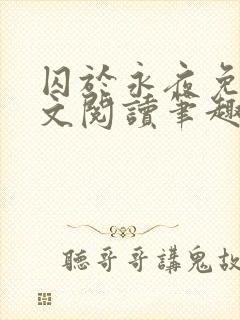 囚於永夜免
文閱讀筆趣
聽哥哥講鬼故